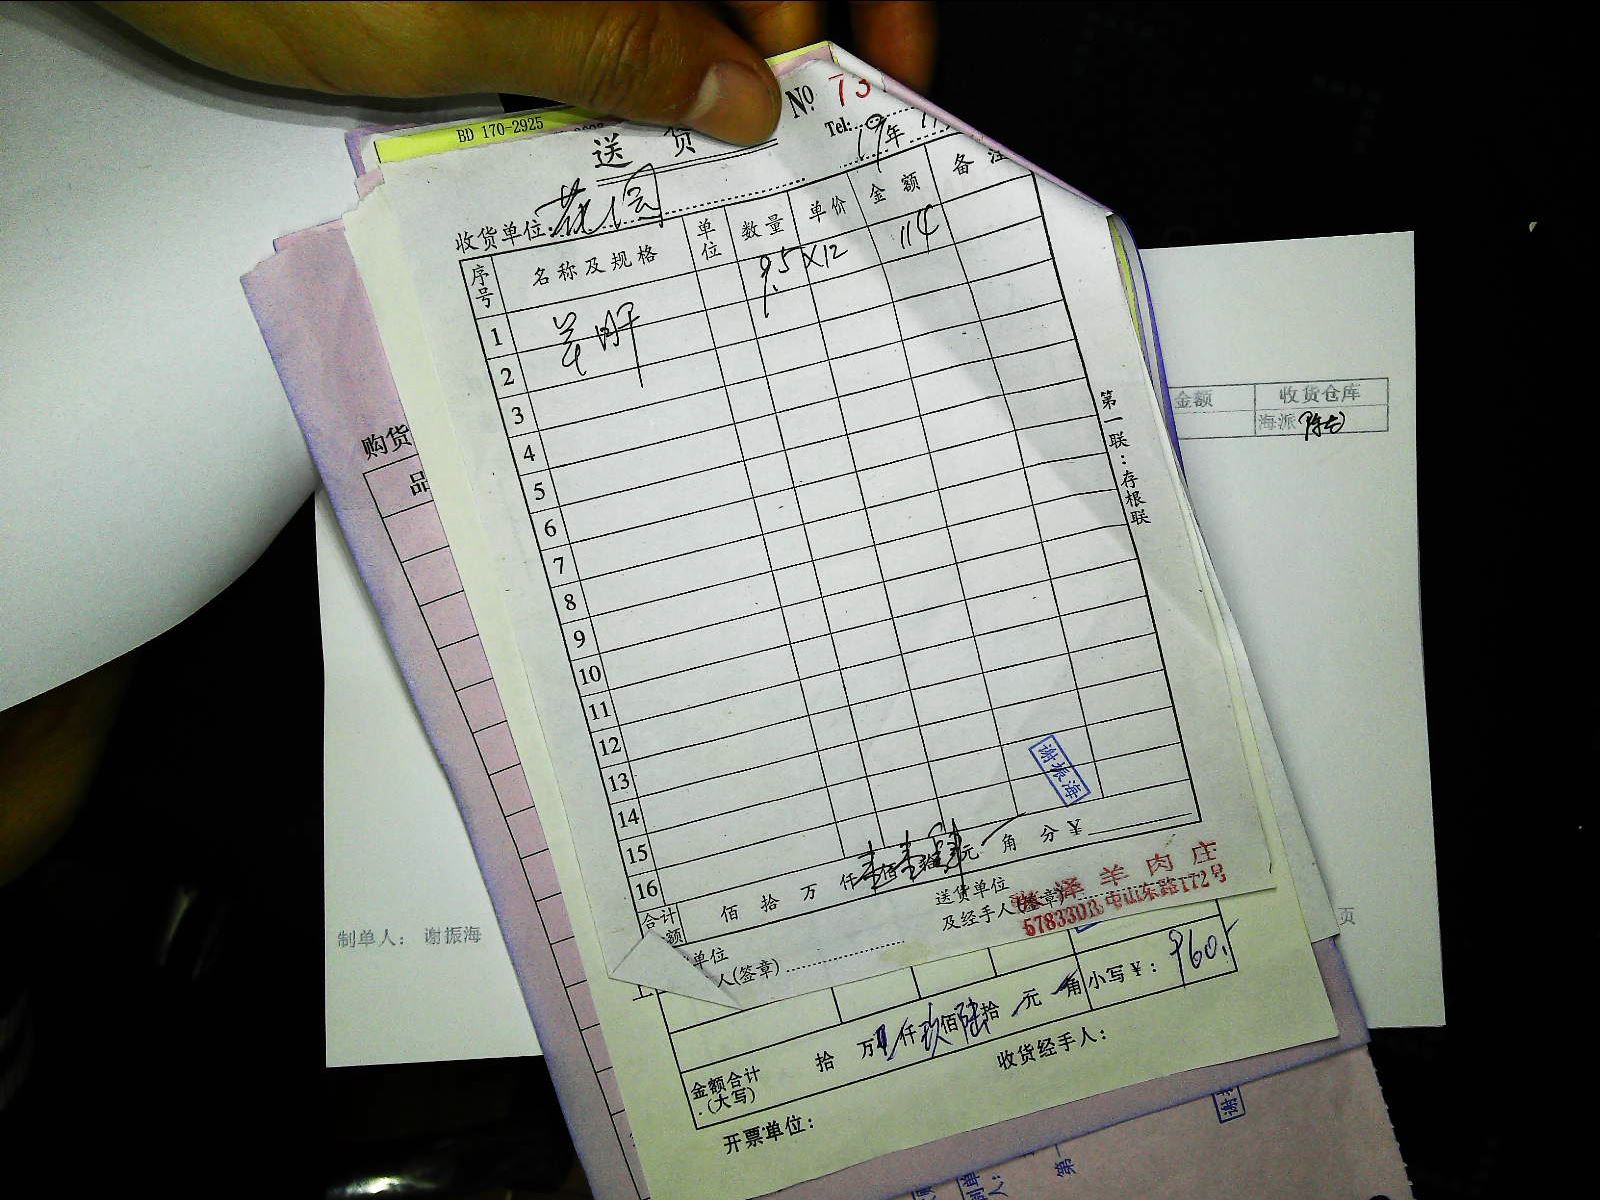 BD 170-2925
送 货
№ 73
Tel:
19年
收货单位: 花园
序号 名称及规格 单位 数量 单价 金额 备注
1 羊肝 9.5 X12 114
2
3
4
5
6
7
8
9
10
11
12
13
14
15
16
谢振海
合计 额 佰 拾 万 仟 壹佰壹拾肆元 角 分 ¥
送货单位
及经手人(签章)
泽羊肉庄
5783303, 屯山东路172号
单位
人(签章)
第一联:存根联
购货
品
金额 收货仓库
海派
制单人: 谢振海
页
金额合计(大写) 拾 万 仟 玖佰陆拾 元 角 小写¥: 960.-
收货经手人:
开票单位: